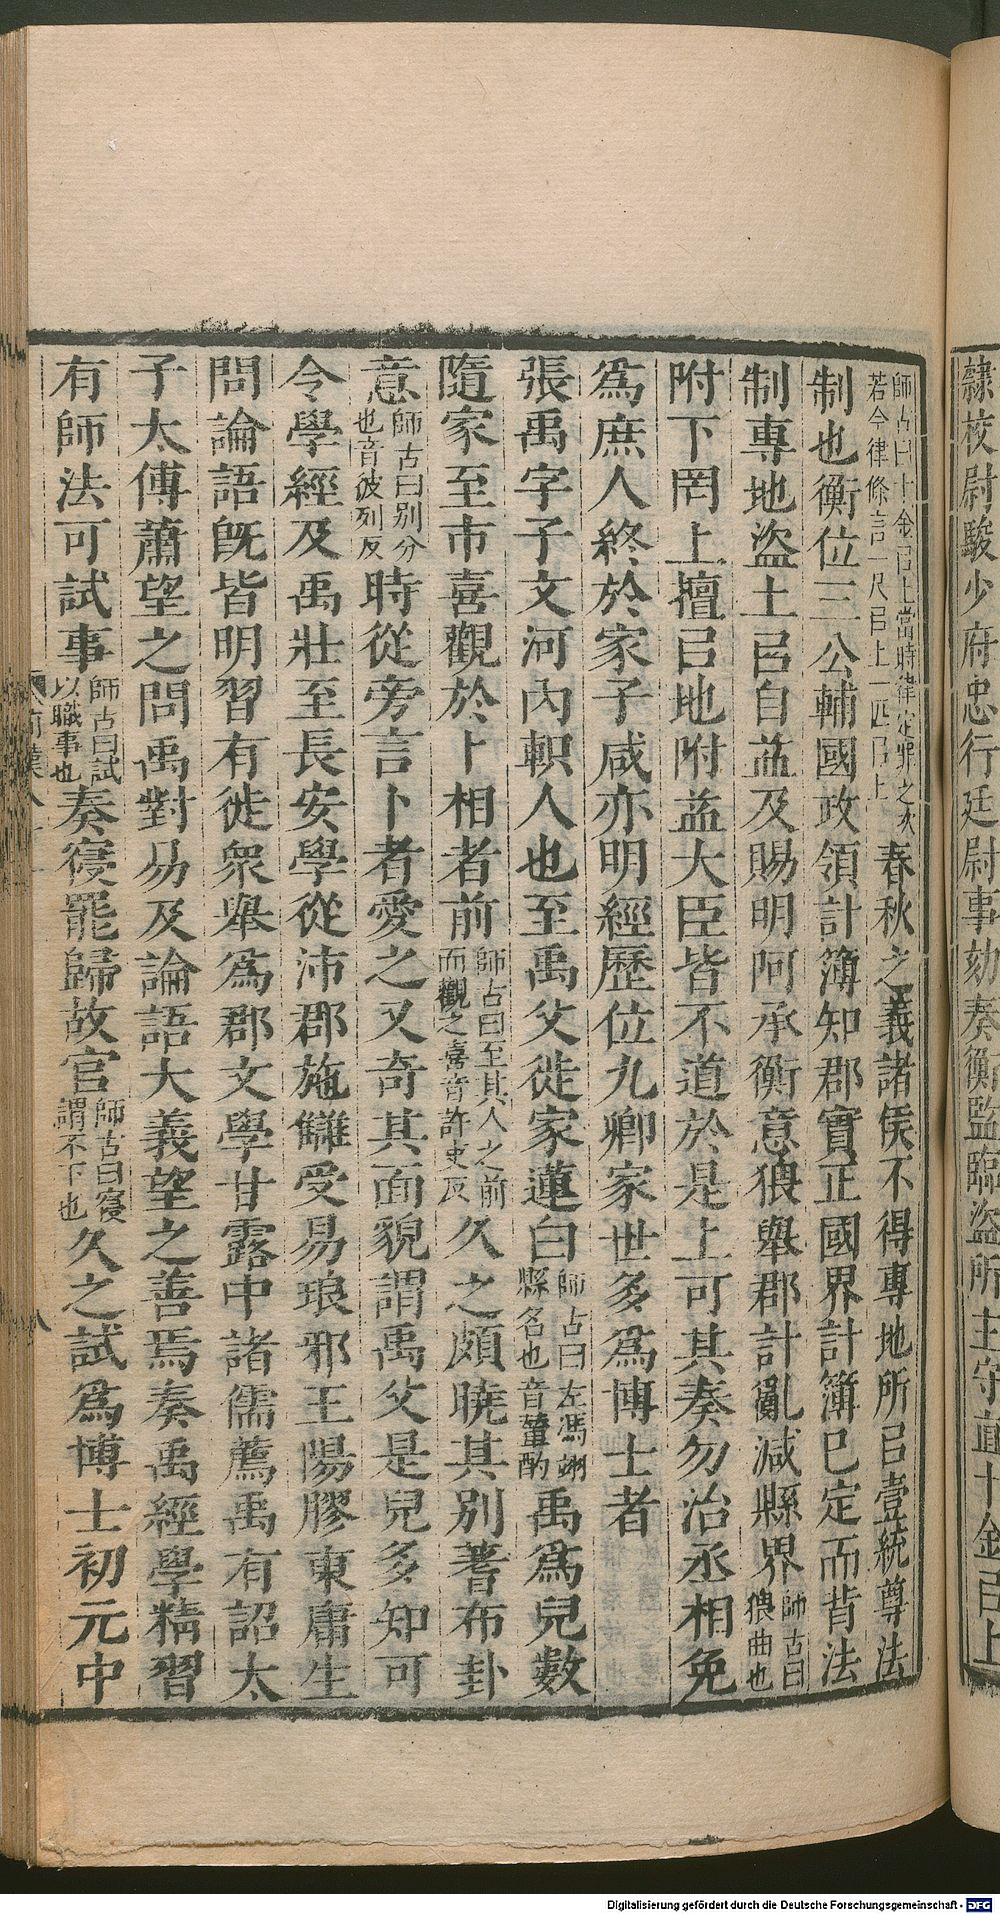 隸校尉駿少府忠行廷尉事劾奏衡監臨盜所主守直十金㠯上
師古曰十金㠯上當時律定罪之次若今律條言一尺㠯上一匹㠯上春秋之義諸侯不得專地所㠯壹統尊法
制也衡位三公輔國政領計簿知郡實正國界計簿已定而背法
制專地盜土㠯自益及賜明阿承衡意猥舉郡計亂減縣界師古曰猥曲也
附下罔上擅㠯地附益大臣皆不道於是上可其奏勿治丞相免
爲庶人終於家子咸亦明經歷位九卿家世多爲博士者
張禹字子文河内軹人也至禹父徙家蓮白師古曰左馮翊縣名也音輦酌禹爲兒數
隨家至市喜觀於卜相者前師古曰至其人之前而觀之喜音許吏反久之頗曉其別蓍布卦
意師古曰別分也音彼列反時從旁言卜者愛之又奇其面貌謂禹父是兒多知可
令學經及禹壯至長安學從沛郡施讎受易琅邪王陽膠東庸生
問論語旣皆明習有徙衆舉爲郡文學甘露中諸儒薦禹有詔太
子太傅蕭望之問禹對易及論語大義望之善焉奏禹經學精習
有師法可試事師古曰試以職事也奏寑罷歸故官師古曰寑謂不下也久之試爲博士初元中
前漢八十一
八
Digitalisierung gefördert durch die Deutsche Forschungsgemeinschaft - DFG